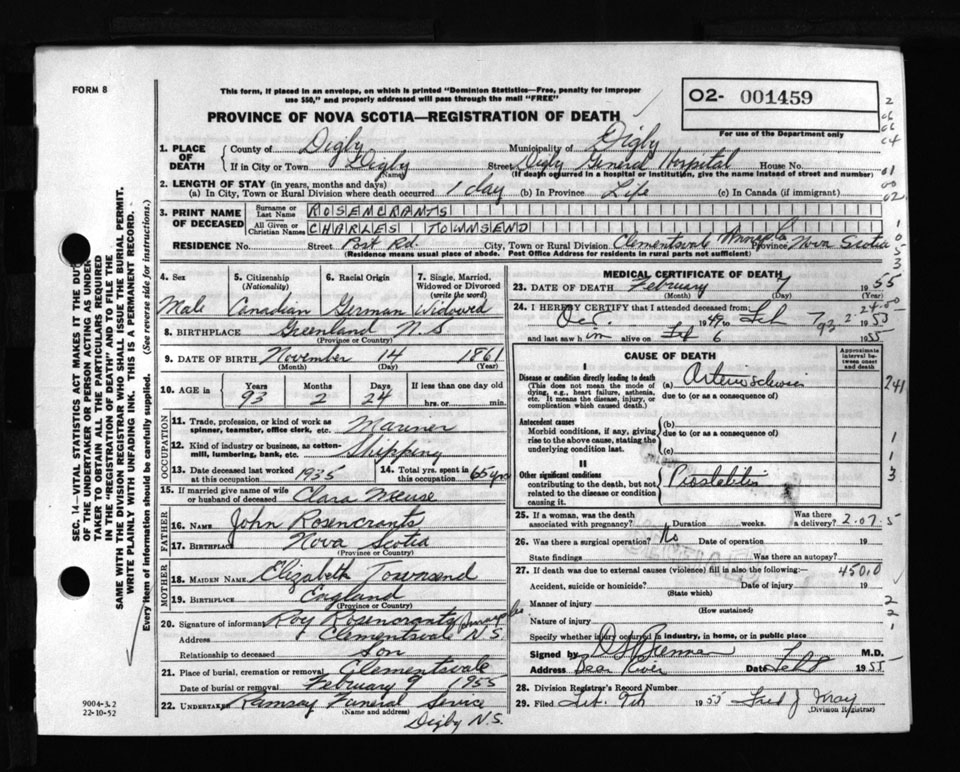 FORM 8
This form, if placed in an envelope, on which is printed "Dominion Statistics—Free, penalty for improper
use $50," and properly addressed will pass through the mail "FREE"
PROVINCE OF NOVA SCOTIA—REGISTRATION OF DEATH
O2- 001459
For use of the Department only
1. PLACE OF DEATH
County of Digby Municipality of Digby
If in City or Town Digby (Name) Street Digby General Hospital House No.
(If death occurred in a hospital or institution, give the name instead of street and number)
2. LENGTH OF STAY (in years, months and days)
(a) In City, Town or Rural Division where death occurred 1 day (b) In Province Life (c) In Canada (if immigrant)
3. PRINT NAME OF DECEASED
Surname or Last Name ROSENCRANTS
All Given or Christian Names CHARLES TOWNSEND
RESIDENCE No. Street Post Rd. City, Town or Rural Division Clementsvale Province Nova Scotia
(Residence means usual place of abode. Post Office Address for residents in rural parts not sufficient)
4. Sex Male
5. Citizenship (Nationality) Canadian
6. Racial Origin German
7. Single, Married, Widowed or Divorced (write the word) Widowed
8. BIRTHPLACE Greenland N.S
(Province or Country)
9. DATE OF BIRTH November 14 1861
(Month) (Day) (Year)
10. AGE in Years 93 Months 2 Days 24 If less than one day old hrs. or min.
OCCUPATION
11. Trade, profession, or kind of work as spinner, teamster, office clerk, etc. Mariner
12. Kind of industry or business, as cotton-mill, lumbering, bank, etc. Shipping
13. Date deceased last worked at this occupation 1935
14. Total yrs. spent in this occupation 65 yrs
15. If married give name of wife or husband of deceased Clara Meuse
FATHER
16. NAME John Rosencrants
17. BIRTHPLACE Nova Scotia
(Province or Country)
MOTHER
18. MAIDEN NAME Elizabeth Townsend
19. BIRTHPLACE England
(Province or Country)
20. Signature of informant Roy Rosencrants
Address Clementsvale N.S.
Relationship to deceased son
21. Place of burial, cremation or removal Clementsvale
Date of burial or removal February 9 1955
22. UNDERTAKER Ramsay Funeral Service
(Name and address)
Digby N.S.
MEDICAL CERTIFICATE OF DEATH
23. DATE OF DEATH February 7 1955
(Month) (Day) (Year)
24. I HEREBY CERTIFY that I attended deceased from:
and last saw him alive on Feb 6 1955
CAUSE OF DEATH
Approximate interval between onset and death
I
Disease or condition directly leading to death
(This does not mean the mode of dying, e.g., heart failure, asthenia, etc. It means the disease, injury, or complication which caused death.)
(a)
due to (or as a consequence of)
Antecedent causes
Morbid conditions, if any, giving rise to the above cause, stating the underlying condition last.
(b)
due to (or as a consequence of)
(c)
II
Other significant conditions
contributing to the death, but not related to the disease or condition causing it.
25. If a woman, was the death associated with pregnancy? Duration weeks. Was there a delivery?
26. Was there a surgical operation? No Date of operation 19
State findings Was there an autopsy?
27. If death was due to external causes (violence) fill in also the following:— 450.0
Accident, suicide or homicide? Date of injury 19
(State which)
Manner of injury
(How sustained)
Nature of injury
Specify whether injury occurred in industry, in home, or in public place
Signed by M.D.
Address Bear River Date Feb 8 1955
28. Division Registrar's Record Number
29. Filed Feb. 9th 1955 Fred J May
(Division Registrar)
9004-3.2
22-10-52
SEC. 14—VITAL STATISTICS ACT MAKES IT THE DUTY
OF THE UNDERTAKER OR PERSON ACTING AS UNDER-
TAKER TO OBTAIN ALL THE PARTICULARS REQUIRED
IN THE "REGISTRATION OF DEATH" AND TO FILE THE
SAME WITH THE DIVISION REGISTRAR WHO SHALL ISSUE THE BURIAL PERMIT.
WRITE PLAINLY WITH UNFADING INK. THIS IS A PERMANENT RECORD.
Every item of information should be carefully supplied. (See reverse side for instructions.)